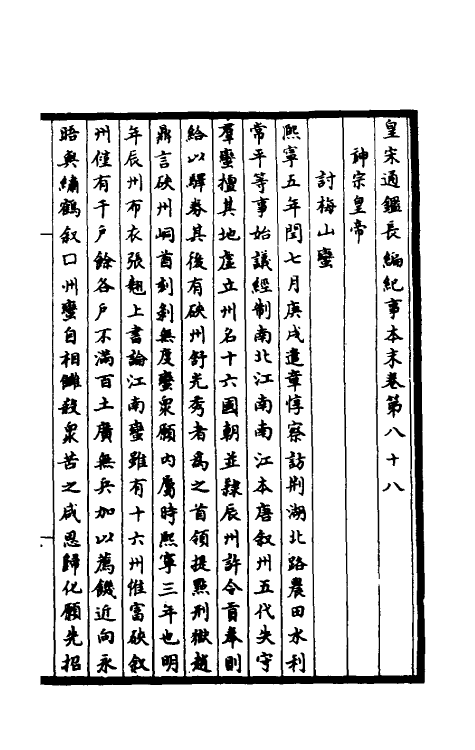 皇宋通鑑長編紀事本末卷第八十八
神宗皇帝
討梅山蠻
熙寧五年閏七月庚戌遣章惇察訪荆湖北路農田水利
常平等事始議經制南北江南南江本唐叙州五代失守
羣蠻擅其地虛立州名十六國朝並隸辰州許令貢奉則
給以驛券其後有硤州舒光秀者為之首領提點刑獄趙
鼎言硤州峒酋刻剥無度蠻眾願內屬時熙寧三年也明
年辰州布衣張翹上書論江南蠻雖有十六州惟富硤叙
州僅有千戶餘各戶不滿百土廣無兵加以薦饑近向永
晤與繡鶴叙口州蠻自相讎殺眾苦之咸思歸化願先招